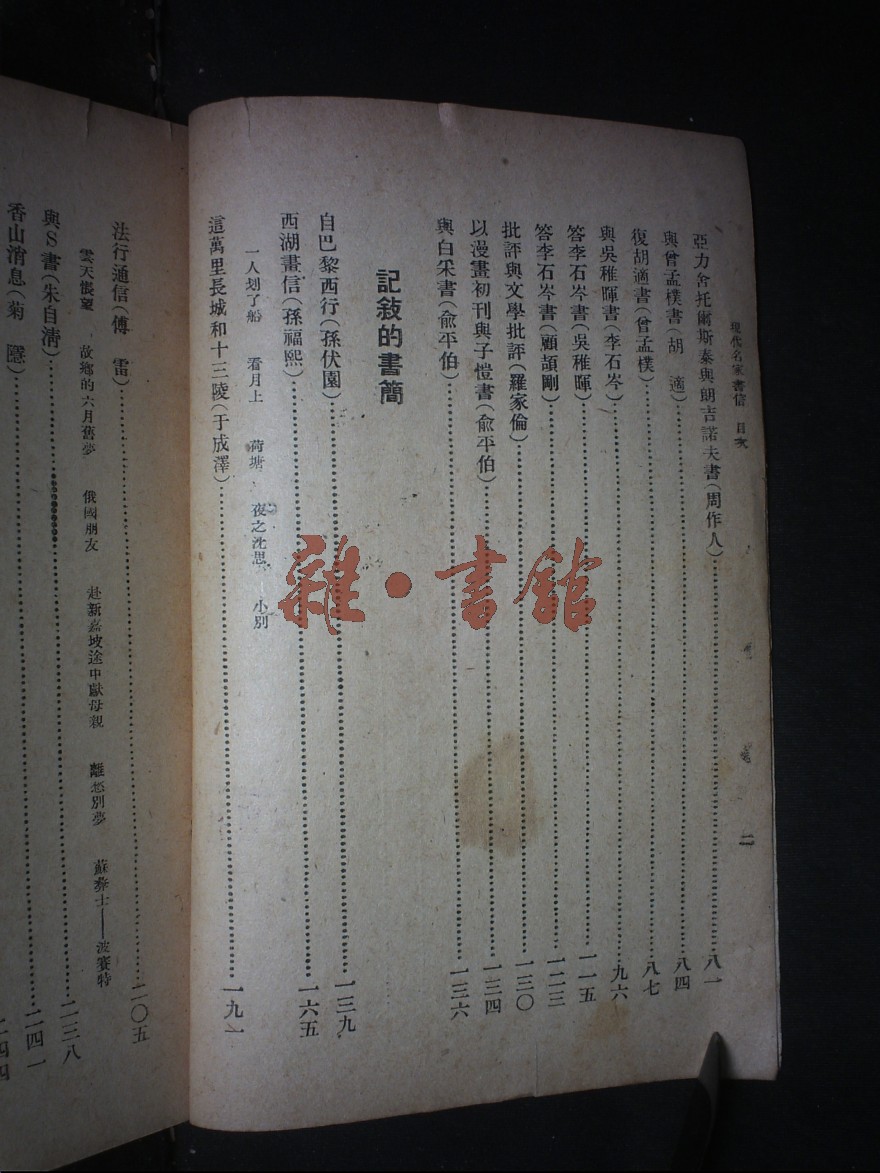 現代名家書信 目次
二
亞力舍托爾斯泰與朗吉諾夫書(周作人)…………八一
與曾孟樸書(胡 適)…………八四
復胡適書(曾孟樸)…………八七
與吳稚暉書(李石岑)…………九六
答李石岑書(吳稚暉)…………一一五
答李石岑書(顧頡剛)…………一二三
批評與文學批評(羅家倫)…………一三〇
以漫畫初刊與子愷書(俞平伯)…………一三四
與白采書(俞平伯)…………一三六
記敍的書簡
自巴黎西行(孫伏園)…………一三九
西湖畫信(孫福熙)…………一六五
一人划了船 看月上 荷塘 夜之沈思 小別
這萬里長城和十三陵(于成澤)…………一九一
法行通信(傅 雷)…………二〇五
雲天悵望 故鄉的六月舊夢 俄國朋友 赴新嘉坡途中獻母親 離愁別夢 蘇彝士——波賽特
與S書(朱自清)…………二三八
香山消息(菊 隱)…………二四一
二四四
雜·書館